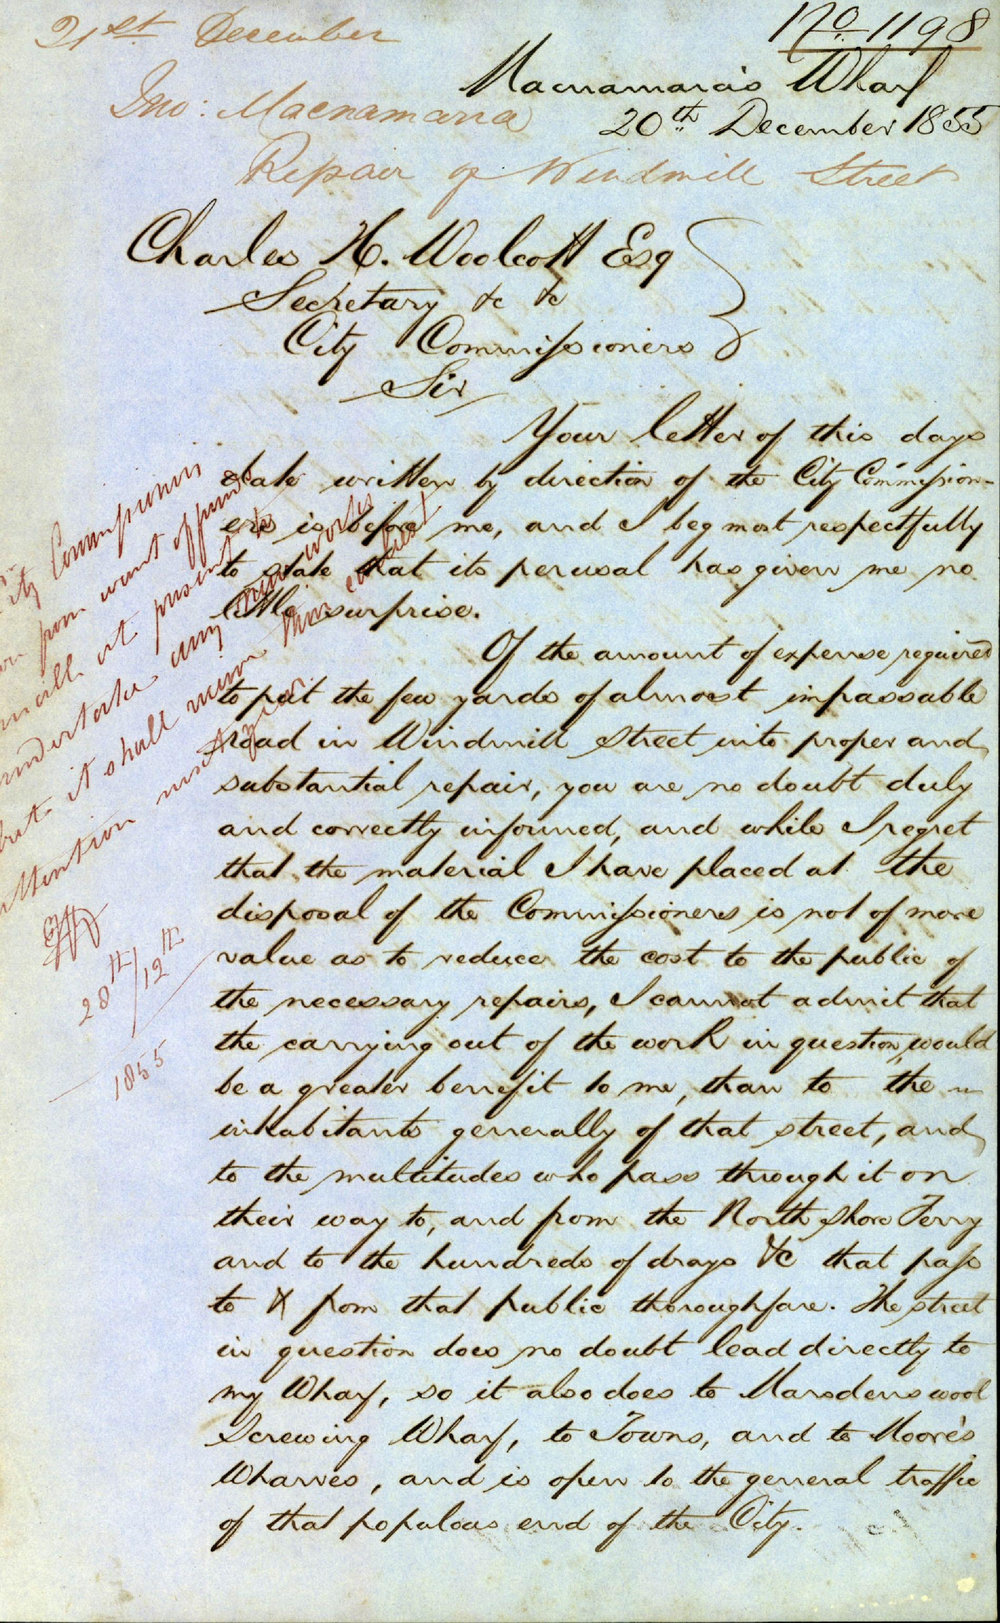 No. 1198
21st December
Macnamara's Wharf
Jno: Macnamara
20th December 1855
Repair of Windmill Street
Charles H. Woolcott Esq
Secretary &c &c
City Commissioners
Sir
Your letter of this days
date written by direction of the City Commission-
ers is before me, and I beg most respectfully
to state that its perusal has given me no
little surprise.
Of the amount of expense required
to put the few yards of almost impassable
road in Windmill Street into proper and
substantial repair, you are no doubt duly
and correctly informed, and while I regret
that the material I have placed at the
disposal of the Commissioners is not of more
value as to reduce the cost to the public of
the necessary repairs, I cannot admit that
the carrying out of the work in question, would
be a greater benefit to me, than to the
inhabitants generally of that street, and
to the multitudes who pass through it on
their way to, and from the North Shore Ferry
and to the hundreds of drays &c that pass
to & from that public thoroughfare. The street
in question does no doubt lead directly to
my Wharf, so it also does to Marsdens wool
Screwing Wharf, to Towns, and to Moore's
Wharves, and is open to the general traffic
of that populous end of the City.
City Commissioners
from want of funds
at present to
undertake any new works
but it shall receive their earliest
attention
28th/12th
1855